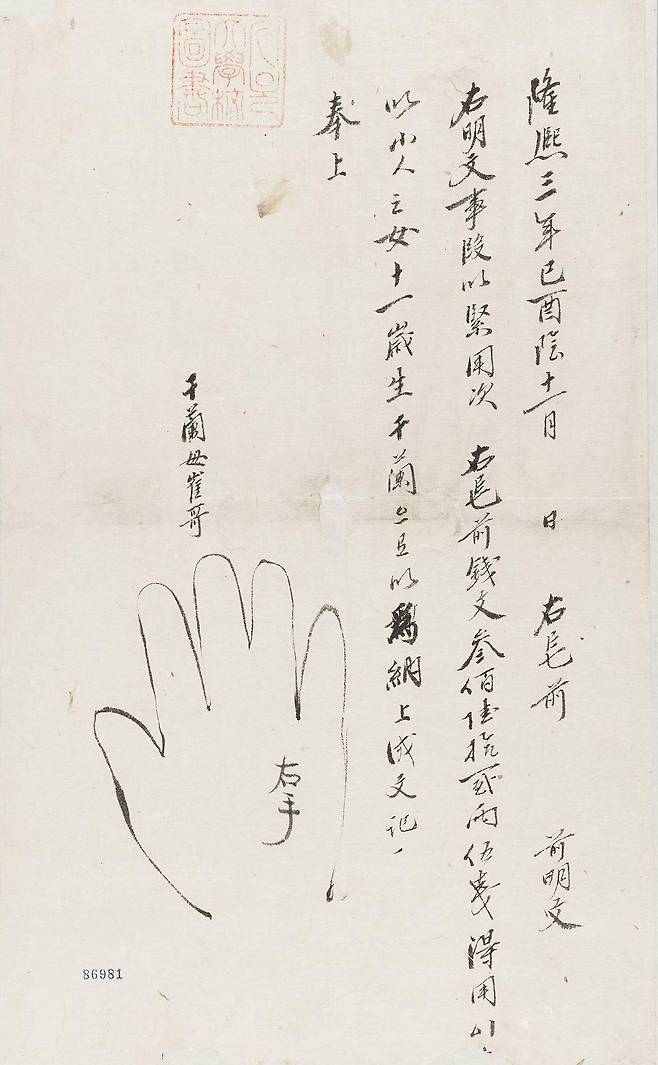 서울大學校圖書
隆熙三年己酉陰十一月 日 右宅前 前明文
右明文事段以緊用次 右宅前錢文參佰陸拾貳兩伍戔得用
以小人之女十一歲生千蘭으로以爲納上成文記
奉上
千蘭母崔哥
右手
86981